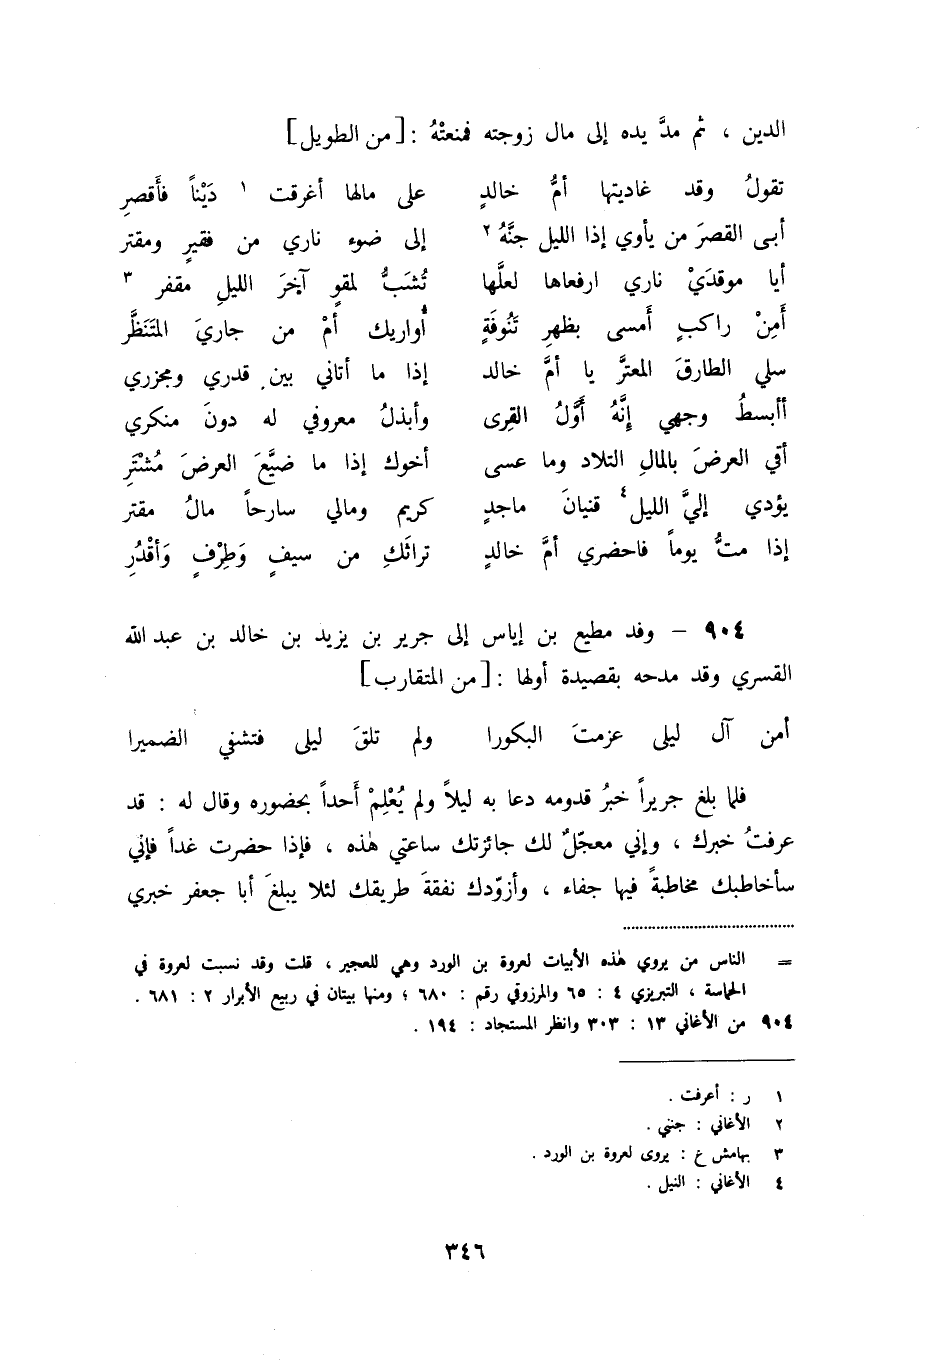 الدين ، ثم مدَّ يده إلى مال زوجته فمنعتْهُ : [من الطويل]
تقولُ وقد غاديتها أمُّ خالدٍ على مالها أغرقت ١ دَيْناً فأَقصرِ
أبى القصرَ من يأوي إذا الليل جنَّهُ ٢ إلى ضوء ناري من فقيرٍ ومقتر
أيا موقدَيْ ناري ارفعاها لعلَّها تُشَبُّ لمقوٍ آخِرَ الليلِ مقفر ٣
أَمِنْ راكبٍ أَمسى بظهرِ تَنُوفَةٍ أُواريك أمْ من جاريَ المتَنَظَّر
سلي الطارقَ المعترَّ يا أمَّ خالد إذا ما أتاني بين قدري ومجزري
أأبسطُ وجهي إنَّهُ أَوَّلُ القِرى وأبذلُ معروفي له دونَ منكري
أقي العرضَ بالمالِ التلاد وما عسى أخوك إذا ما ضيَّعَ العرضَ مُشْتَرِ
يؤدي إليَّ الليل ٤ قنيانَ ماجدٍ كريم ومالي سارحاً مالُ مقتر
إذا متُّ يوماً فاحضري أمَّ خالدٍ تراثَكِ من سيفٍ وَطِرْفٍ وَأقْدُرِ
٩٠٤ – وفد مطيع بن إياس إلى جرير بن يزيد بن خالد بن عبد الله
القسري وقد مدحه بقصيدة أولها : [من المتقارب]
أمن آل ليلى عزمتَ البكورا ولم تلقَ ليلى فتشفي الضميرا
فلما بلغ جريراً خبرُ قدومه دعا به ليلاً ولم يُعْلِمْ أَحداً بحضوره وقال له : قد
عرفتُ خبرك ، وإني معجّلٌ لك جائزتك ساعتي هٰذه ، فإذا حضرت غداً فإنّي
سأخاطبك مخاطبةً فيها جفاء ، وأزوّدك نفقةَ طريقك لئلا يبلغَ أبا جعفر خبري
= الناس من يروي هٰذه الأبيات لعروة بن الورد وهي للعجير ، قلت وقد نسبت لعروة في
الحماسة ، التبريزي ٤ : ٦٥ والمرزوقي رقم : ٦٨٠ ؛ ومنها بيتان في ربيع الأبرار ٢ : ٦٨١ .
٩٠٤ من الأغاني ١٣ : ٣٠٣ وانظر المستجاد : ١٩٤ .
١ ر : أعرفت .
٢ الأغاني : جنني .
٣ بهامش غ : يروى لعروة بن الورد .
٤ الأغاني : النيل .
٣٤٦